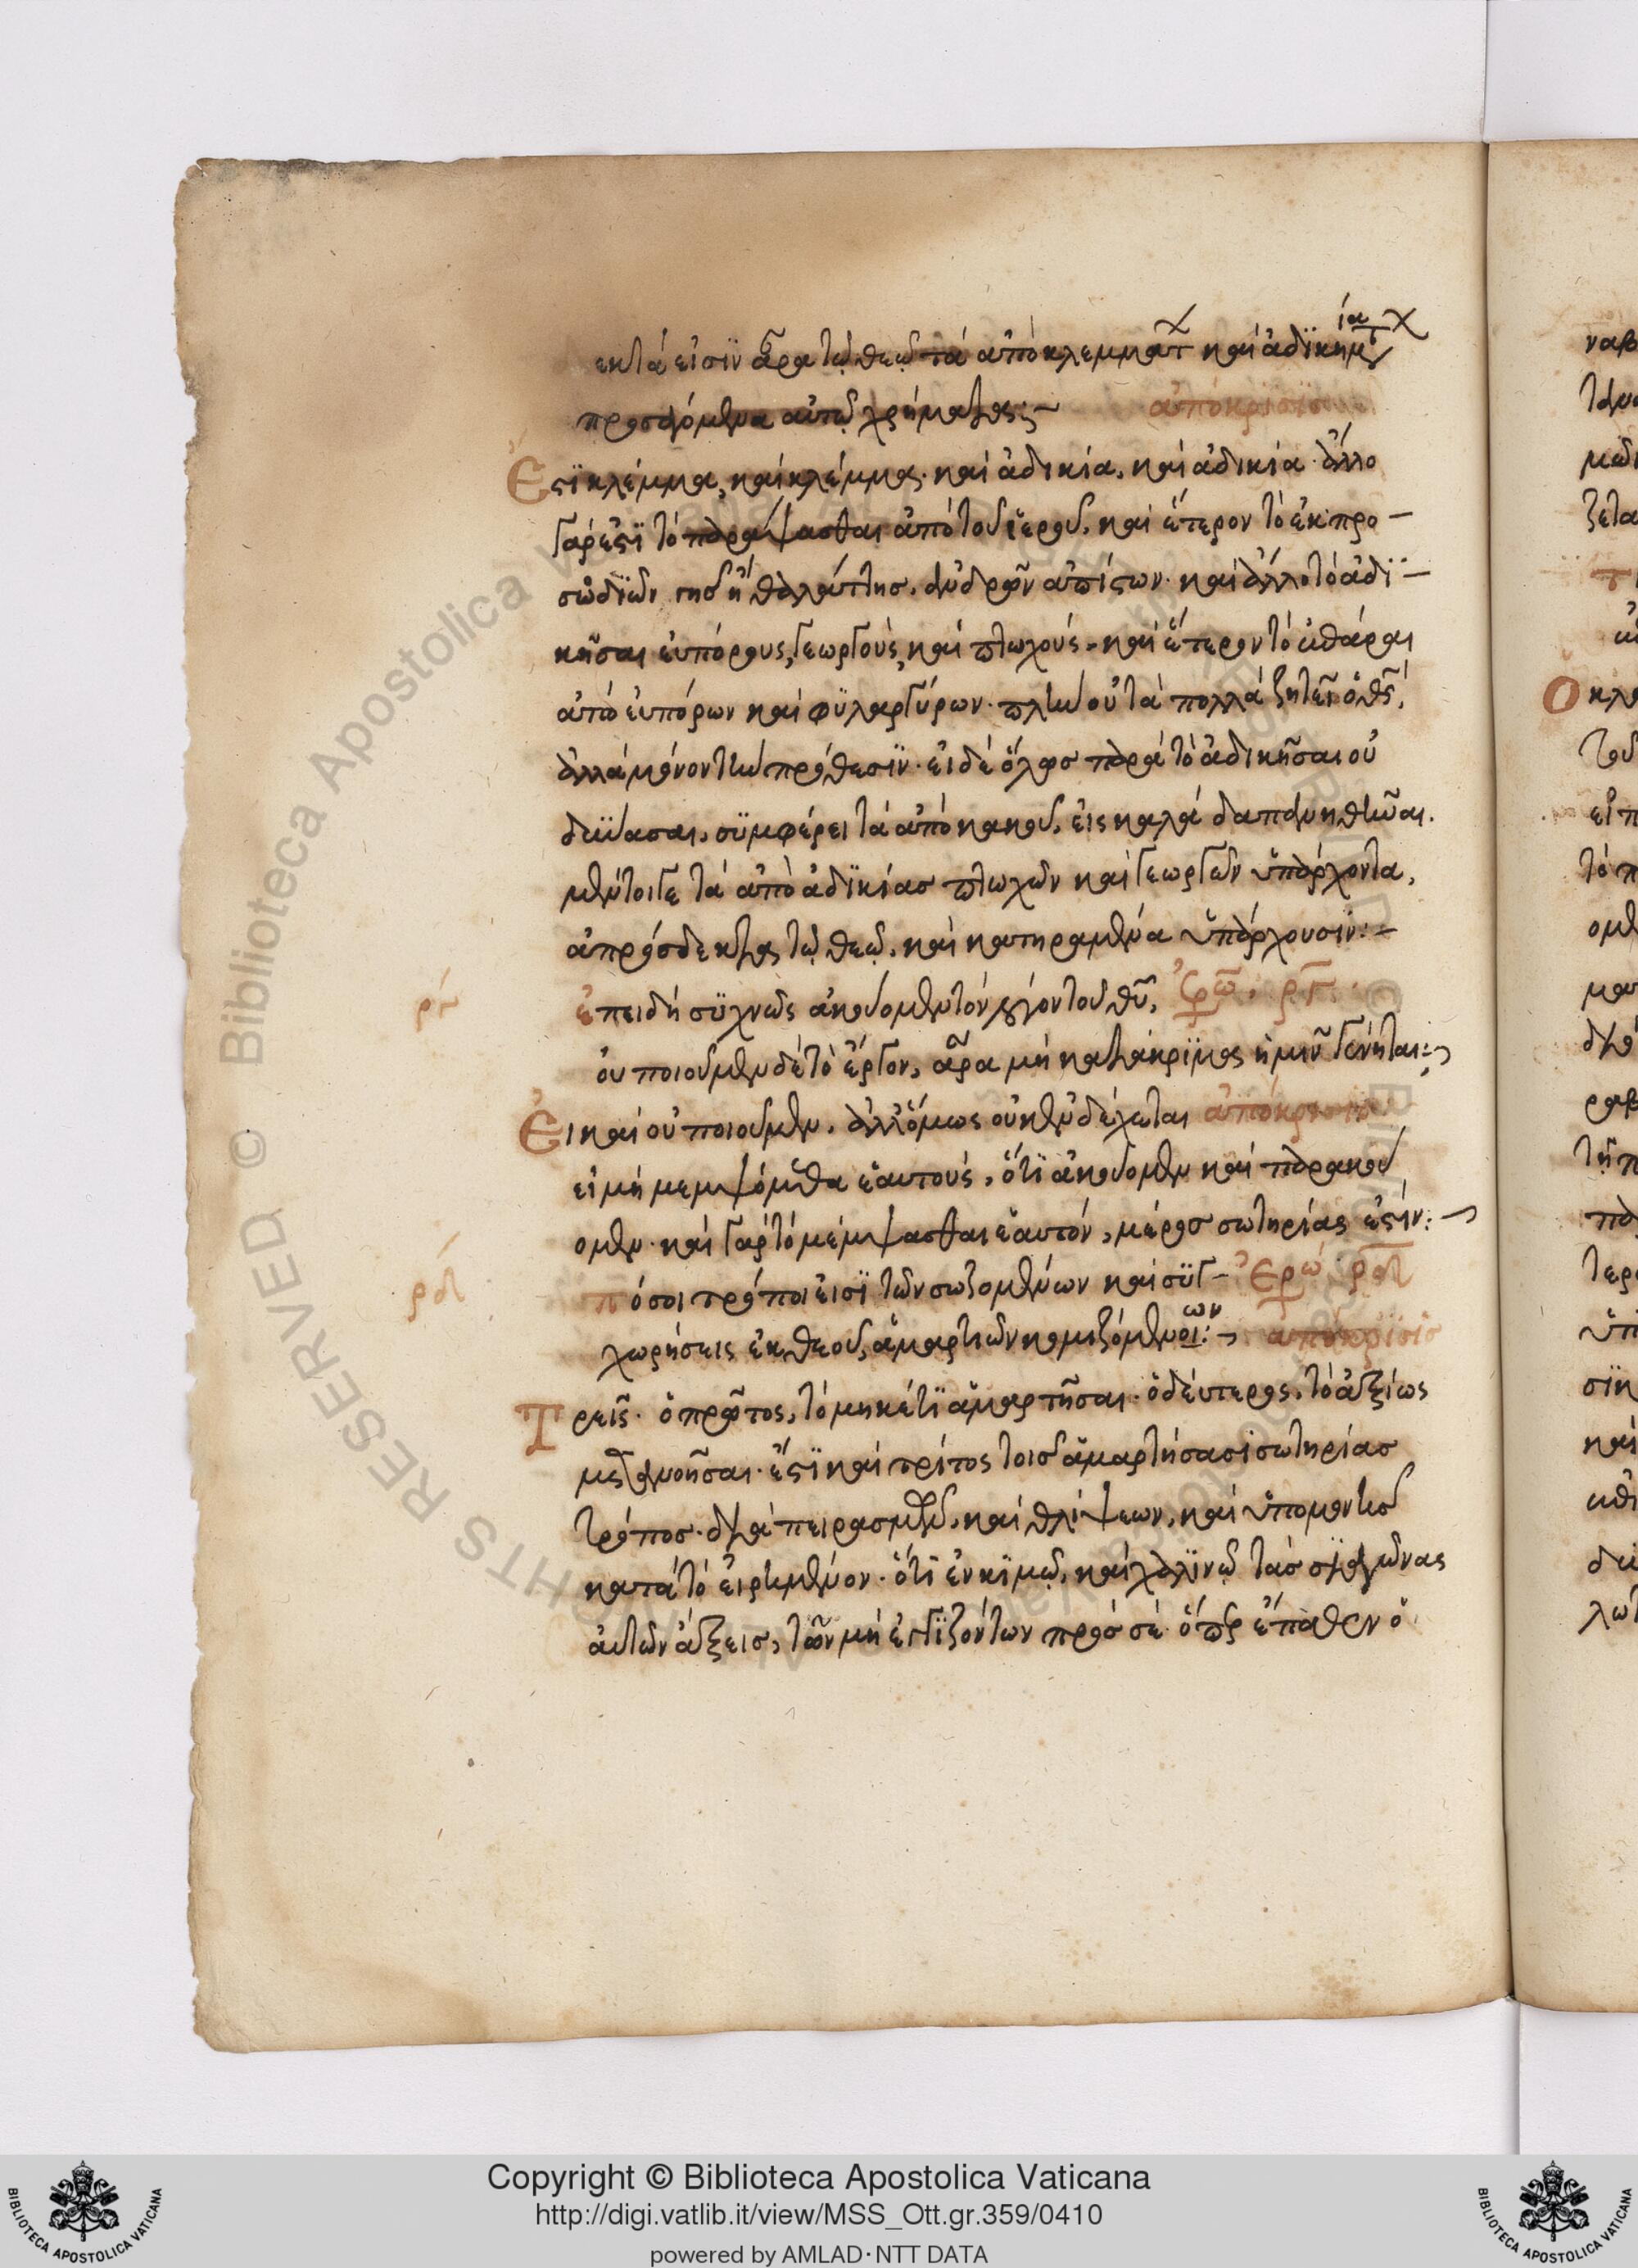 εκτά εἰσὶν ἆρα τῷ θεῷ τὰ ἀπὸ κλεμμάτ καὶ ἀδϊκημ ία
προσφόμενα αὐτῷ χρήματα;~ ἀπόκρϊσϊς
Ἔςϊ κλέμμα, καὶ κλέμμα. καὶ ἀδικία, καὶ ἀδικία. ἄλλο
γάρ ἐςϊ τὸ παράψασθαι ἀπὸ τοῦ ἱεροῦ, καὶ ἕτερον τὸ ἐκ προ–
σώδϊων γῆς ἢ θαλάττης, ἀνδρῶν ἀπίςων. καὶ ἄλλο τὸ ἀδϊ–
κῆσαι εὐπόρους, γεωργοὺς, καὶ πτωχούς. καὶ ἕτερον τὸ ἐπάραι
ἀπὸ εὐπόρων καὶ φϋλαργύρων. πλὴν οὐ τὰ πολλὰ ζητεῖ ὁ θς,
ἀλλὰ μόνον τὴν πρόθεσϊν. εἰ δὲ ὅλως παρὰ τὸ ἀδικῆσαι οὐ
δεϋνασαι, σϋμφέρει τὰ ἀπὸ κακοῦ, εἰς καλὰ δαπανηθῆναι.
μέντοιγε τὰ ἀπὸ ἀδϊκίας πτωχῶν καὶ γεωργῶν ὑπάρχοντα,
ἀπρόσδεκτα τῷ θεῷ, καὶ κατηραμένα ὑπάρχουσϊν:–
ργ ἐπειδὴ σϋχνῶς ἀκούομεν τὸν λόγον τοῦ θυ, Ἐρω. ργ
οὐ ποιοῦμεν δὲ τὸ ἔργον, ἆρα μὴ κατάκρϊμα ἡμῖν γένηται;
Εἰ καὶ οὐ ποιοῦμεν, ἀλλ' ὅμως οὐκ ἐνδέχεται ἀπόκρισις
εἰ μὴ μεμψόμεθα ἑαυτούς, ὅτϊ ἀκούομεν καὶ παρακού
ομεν. καὶ γὰρ τὸ μέμψασθαι ἑαυτόν, μέρος σωτηρίας ἐςίν:
ρδ πόσοι τρόποι εἰσϊ τῶν σωζομένων καὶ σϋγ– Ἐρώ ρδ
χωρήσεις ἐκ θεοῦ, ἁμαρτιῶν κομιζόμενοι ων: ἀπόκρϊσϊς
Τρεῖς. ὁ πρῶτος, τὸ μηκέτϊ ἁμαρτῆσαι. ὁ δεύτερος, τὸ ἀξίως
μετανοῆσαι. ἔςϊ καὶ τρίτος τοῖς ἁμαρτήσασϊ σωτηρίας
τρόπος. διὰ πειρασμῶν, καὶ θλίψεων, καὶ ὑπομονῆς
κατὰ τὸ εἰρημένον. ὅτϊ ἐν κϊμῷ, καὶ χαλϊνῷ τὰς σϊαγώνας
αὐτῶν ἄξεις, τῶν μὴ ἐγγϊζόντων πρὸς σέ. ὅπερ ἔπαθεν ὁ
Copyright © Biblioteca Apostolica Vaticana
http://digi.vatlib.it/view/MSS_Ott.gr.359/0410
powered by AMLAD·NTT DATA